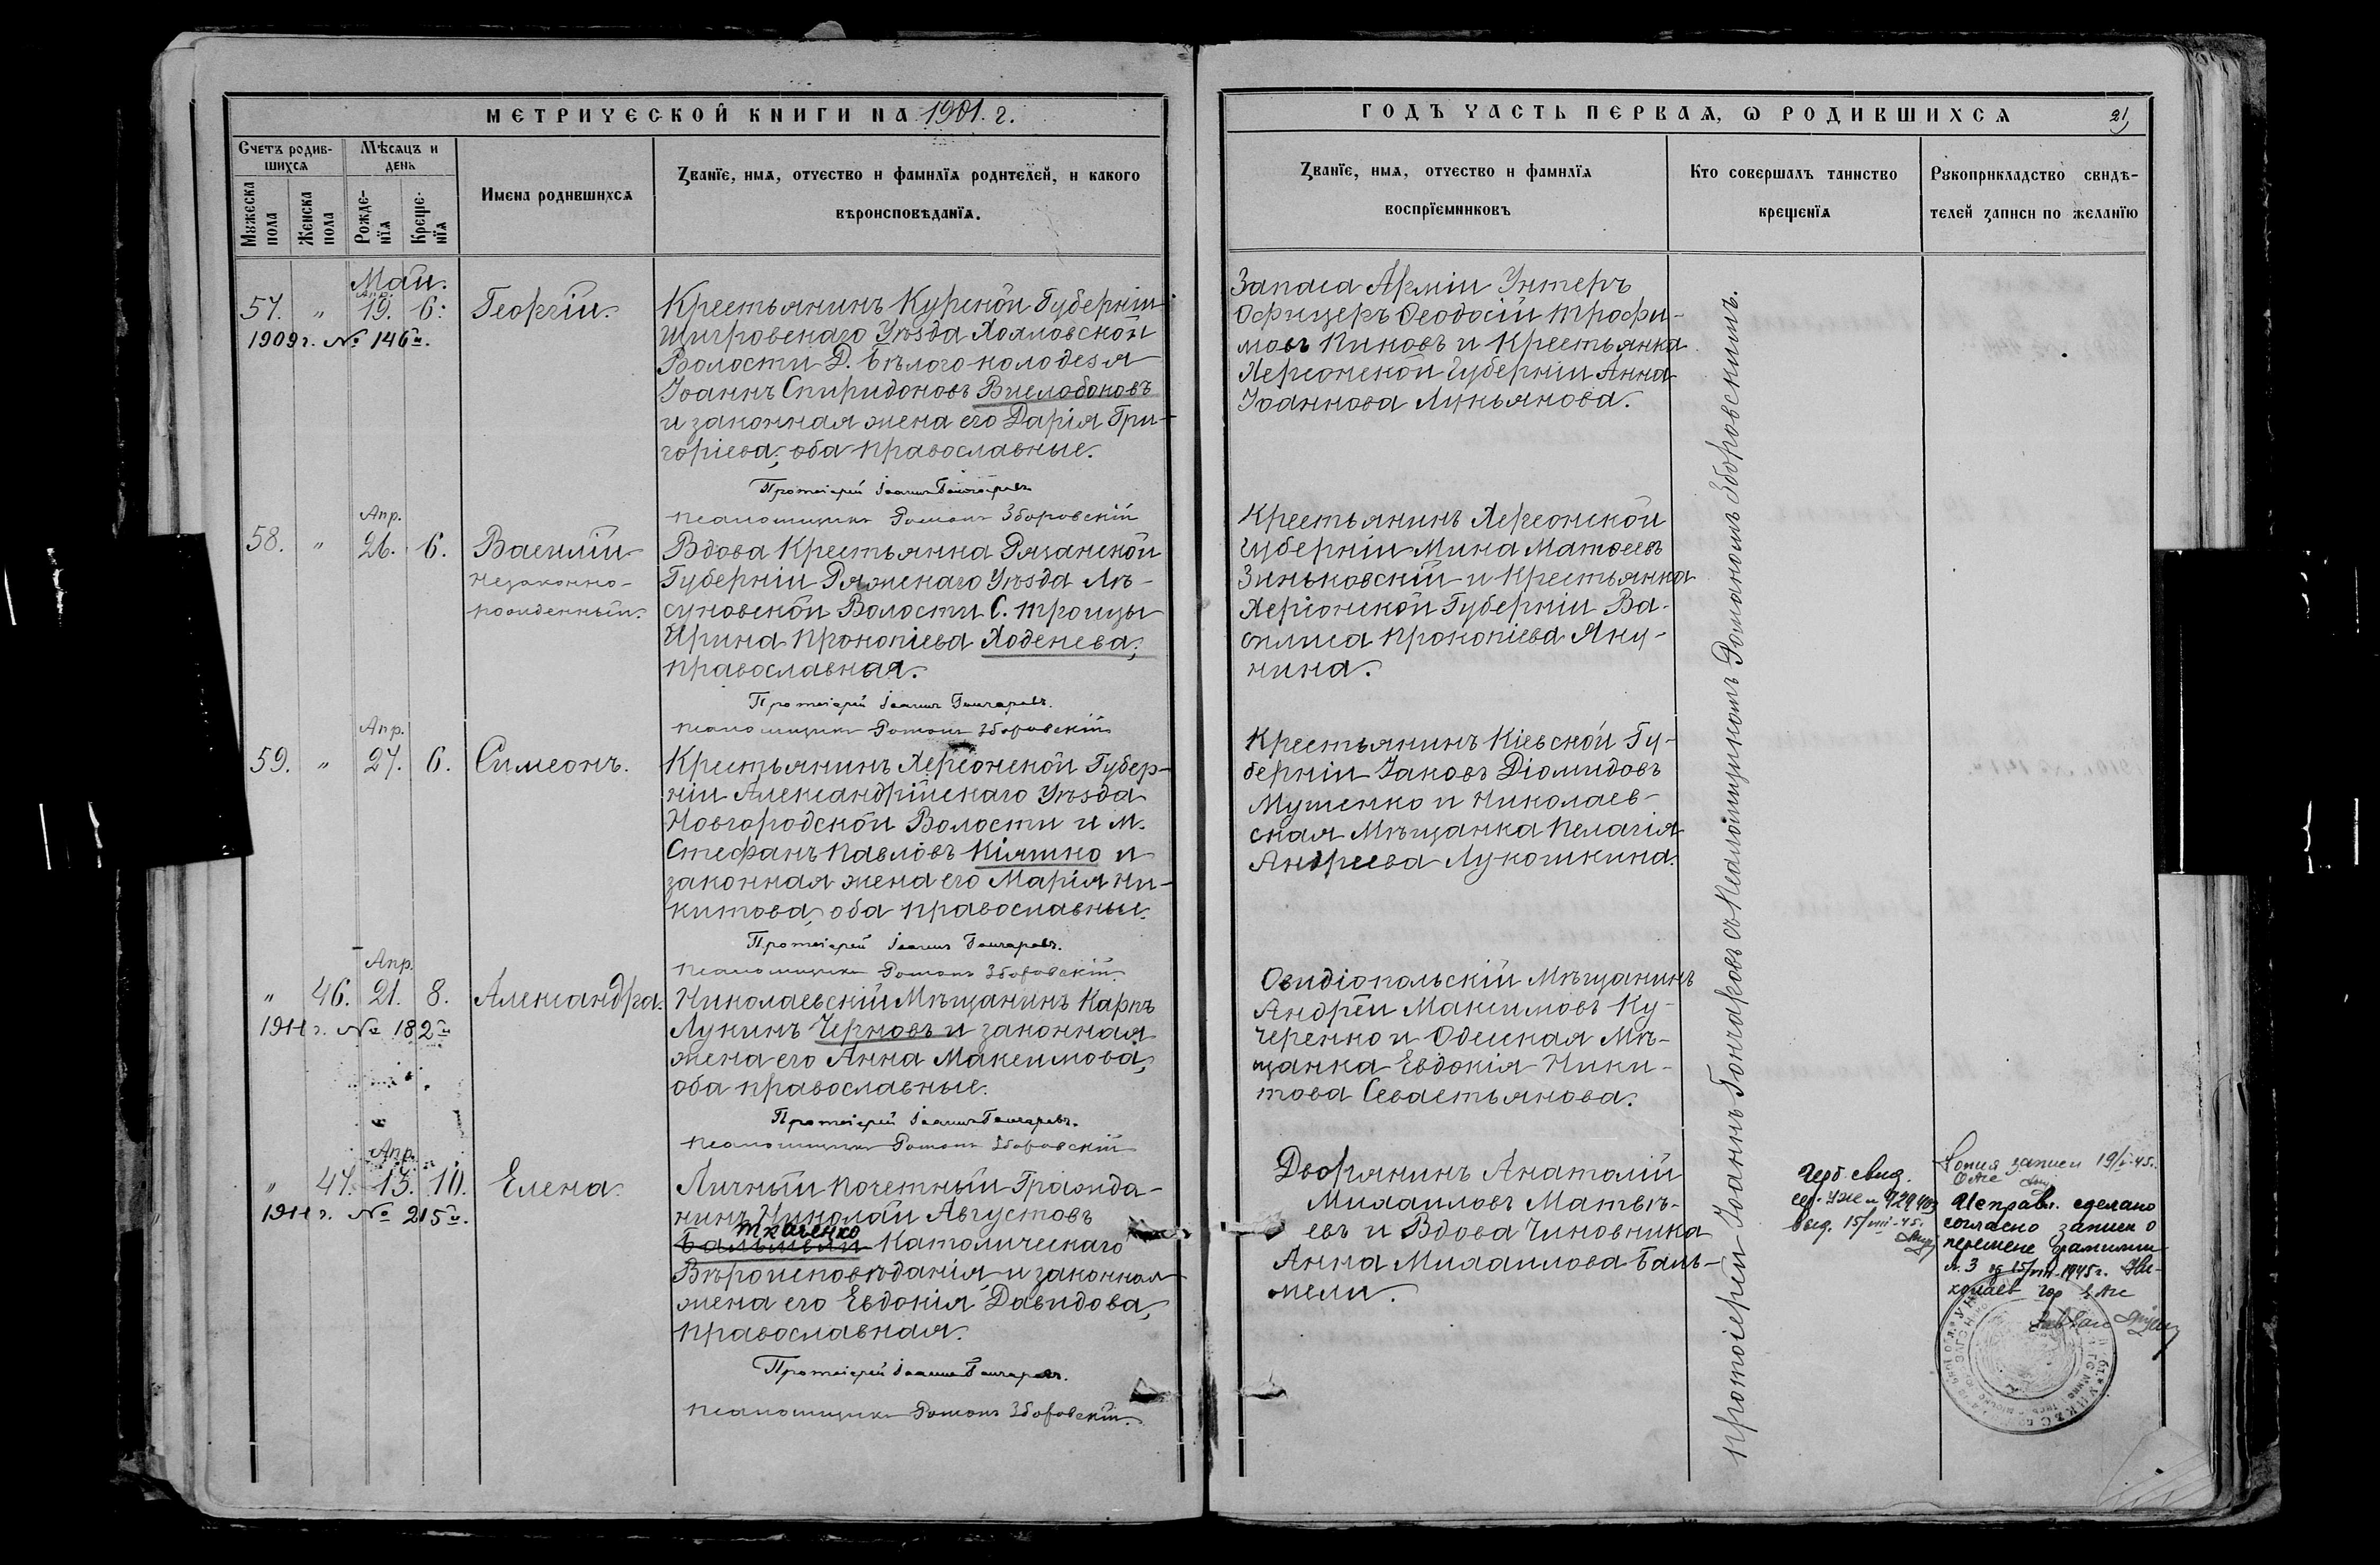 МЕТРИЧЕСКОЙ КНИГИ НА 1901. г.
Счетъ родив-
шихся
Мѣсяцъ и
день
Мужеска
пола
Женска
пола
Рожде-
нїя
Креще-
нїя
Имена родившихся
Званїе, имя, отчество и фамилїя родителей, и какого
вѣроисповѣданїя.
Май.
Апр.
57. " 19. 6. Георгій.
1909 г. № 146й.
Крестьянинъ Курской Губерніи
Щигровскаго Уѣзда
Волости Д. Бѣлого колодезя
Іоаннъ Спиридоновъ
и законная жена его Дарія Гри-
горіева, оба православные.
Протоіерей Іоаннъ Гончаровъ
Псаломщикъ Романъ Зборовскій
Апр.
58. " 26. 6. Василій
незаконно-
рожденный.
Вдова Крестьянка Рязанской
Губерніи Ряжскаго Уѣзда
Волости С. Троицы
Ирина Прокопіева Ходенева,
православная.
Протоіерей Іоаннъ Гончаровъ.
Псаломщикъ Романъ Зборовскій
Апр.
59. " 27. 6. Симеонъ.
Крестьянинъ Херсонской Губер-
ніи Александрійскаго Уѣзда
Новгородской Волости и м.
Стефанъ Павловъ Кіяшко и
законная жена его Марія Ни-
китова, оба православные.
Протоіерей Іоаннъ Гончаровъ.
Псаломщикъ Романъ Зборовскій
Апр.
" 46. 21. 8. Александра.
1911 г. № 182й
Николаевскій Мѣщанинъ Карпъ
Лукинъ Черновъ и законная
жена его Анна Максимова,
оба православные.
Протоіерей Іоаннъ Гончаровъ.
Псаломщикъ Романъ Зборовскій
Апр.
" 47. 15. 10. Елена.
1911 г. № 215й.
Личный Почетный Гражда-
нинъ Николай Августовъ
Ткаченко
Бальмели Католическаго
Вѣроисповѣданія и законная
жена его Евдокія Давидова,
православная.
Протоіерей Іоаннъ Гончаровъ.
Псаломщикъ Романъ Зборовскій.
ГОДЪ ЧАСТЬ ПЕРВАЯ, Ѡ РОДИВШИХСЯ
21
Званїе, имя, отчество и фамилїя
воспрїемниковъ
Кто совершалъ таинство
крещенїя
Рукоприкладство свидѣ-
телей записи по желанїю
Запаса Арміи Унтеръ
Офицеръ Ѳеодосій Трофи-
мовъ Пиковъ и Крестьянка
Херсонской Губерніи Анна
Іоаннова Лукьянова.
Крестьянинъ Херсонской
Губерніи Мина Матѳеевъ
Зиньковскій и Крестьянка
Херсонской Губерніи Ва-
силиса Прокопіева Яку-
нина.
Крестьянинъ Кіевской Гу-
берніи Іаковъ Діомидовъ
Мушенко и Николаев-
ская Мѣщанка Пелагія
Андреева Лукошкина.
Овидіопольскій Мѣщанинъ
Андрей Максимовъ Ку-
черенко и Одесская Мѣ-
щанка Евдокія Ники-
това Севастьянова.
Дворянинъ Анатолій
Михаиловъ Матвѣ-
евъ и Вдова Чиновника
Анна Михаилова Баль-
мели.
Протоіерей Іоаннъ Гончаровъ съ Псаломщикомъ Романомъ Зборовскимъ.
Герб. свид.
выд. 15/VIII-45 г.
Копия записи 19/V-45 г.
Исправл. сделано
согласно записи о
перемене фамилии
№ 3 от 15/VIII-1945 г. Ни-
колаев гор